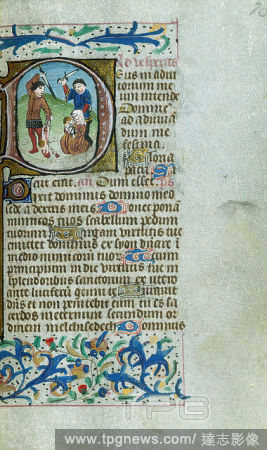 Ad vesperas
Deus in adiu
torium me
um intende
Domine
ad adiuva
dum me
festina.
Gloria
Sicut erat. an Dum esset. ps
Dixit dominus domino meo
sede a dextris meis Donec pona
inimicos tuos scabellum pedum
tuorum Virgam virtutis tue
emittet dominus ex syon
medio inimicorum tuor Tecum
principium in die virtutis tue in
splendoribus sanctorum ex utero
ante luciferum genui te Iuravit
dns et non penitebit eum tu es sa
cerdos in eternum secundum or
dinem melchisedech Dominus
TPG
www.tpgnews.com / 達志影像